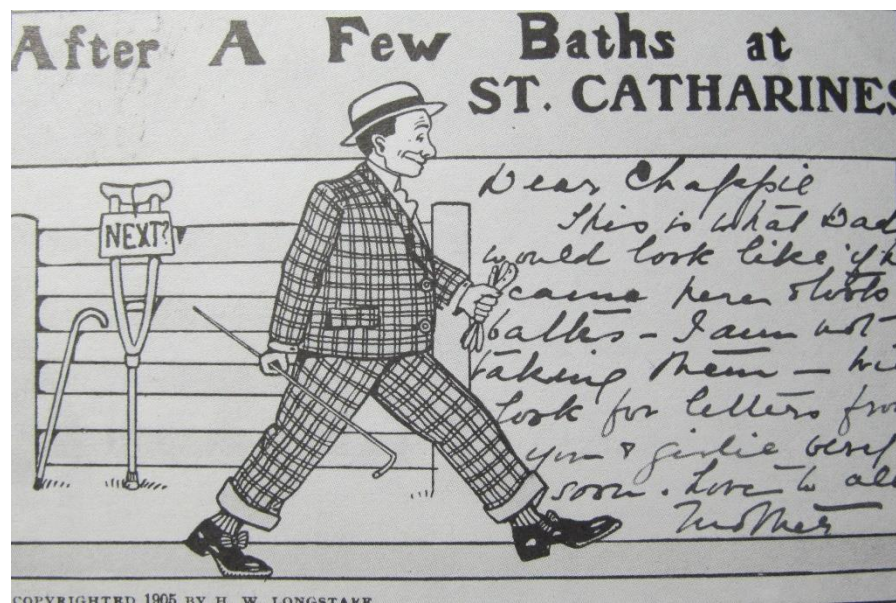 After A Few Baths at
ST. CATHARINES
NEXT?
Dear Chappie
This is what Dad
would look like if h
came here & took
baths - I am not
taking them - wi
look for letters fro
you & girlie very
soon. Love to all
Mother
COPYRIGHTED 1905 BY H. W. LONGSTAFF